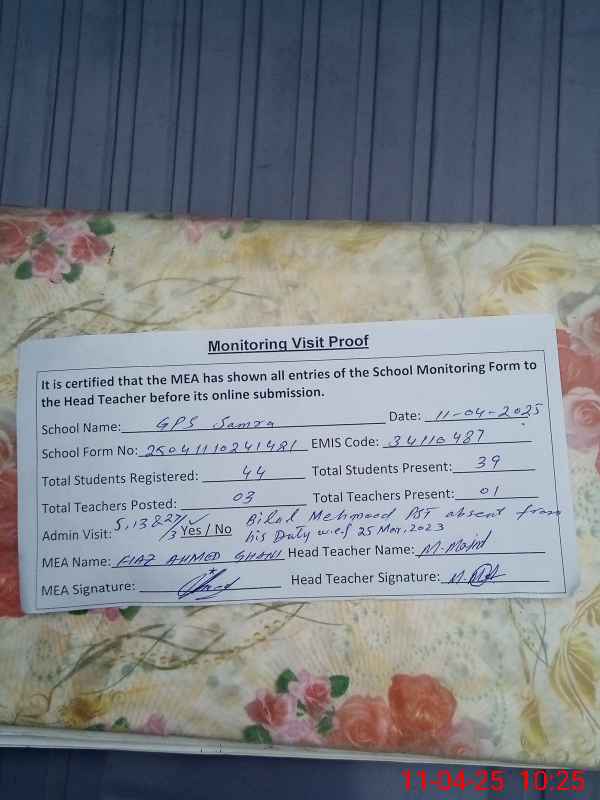 Monitoring Visit Proof
It is certified that the MEA has shown all entries of the School Monitoring Form to
the Head Teacher before its online submission.
School Name: GPS Samra Date: 11-04-2025
School Form No: 25041110241481 EMIS Code: 34110487
Total Students Registered: 44 Total Students Present: 39
Total Teachers Posted: 03 Total Teachers Present: 01
Admin Visit: 5,13&27/3 Yes / No Bilal Mehmood PST absent from
his Duty w.e.f 25 Mar, 2023
MEA Name: FIAZ AHMED GHANI Head Teacher Name:
MEA Signature: Head Teacher Signature:
11-04-25 10:25